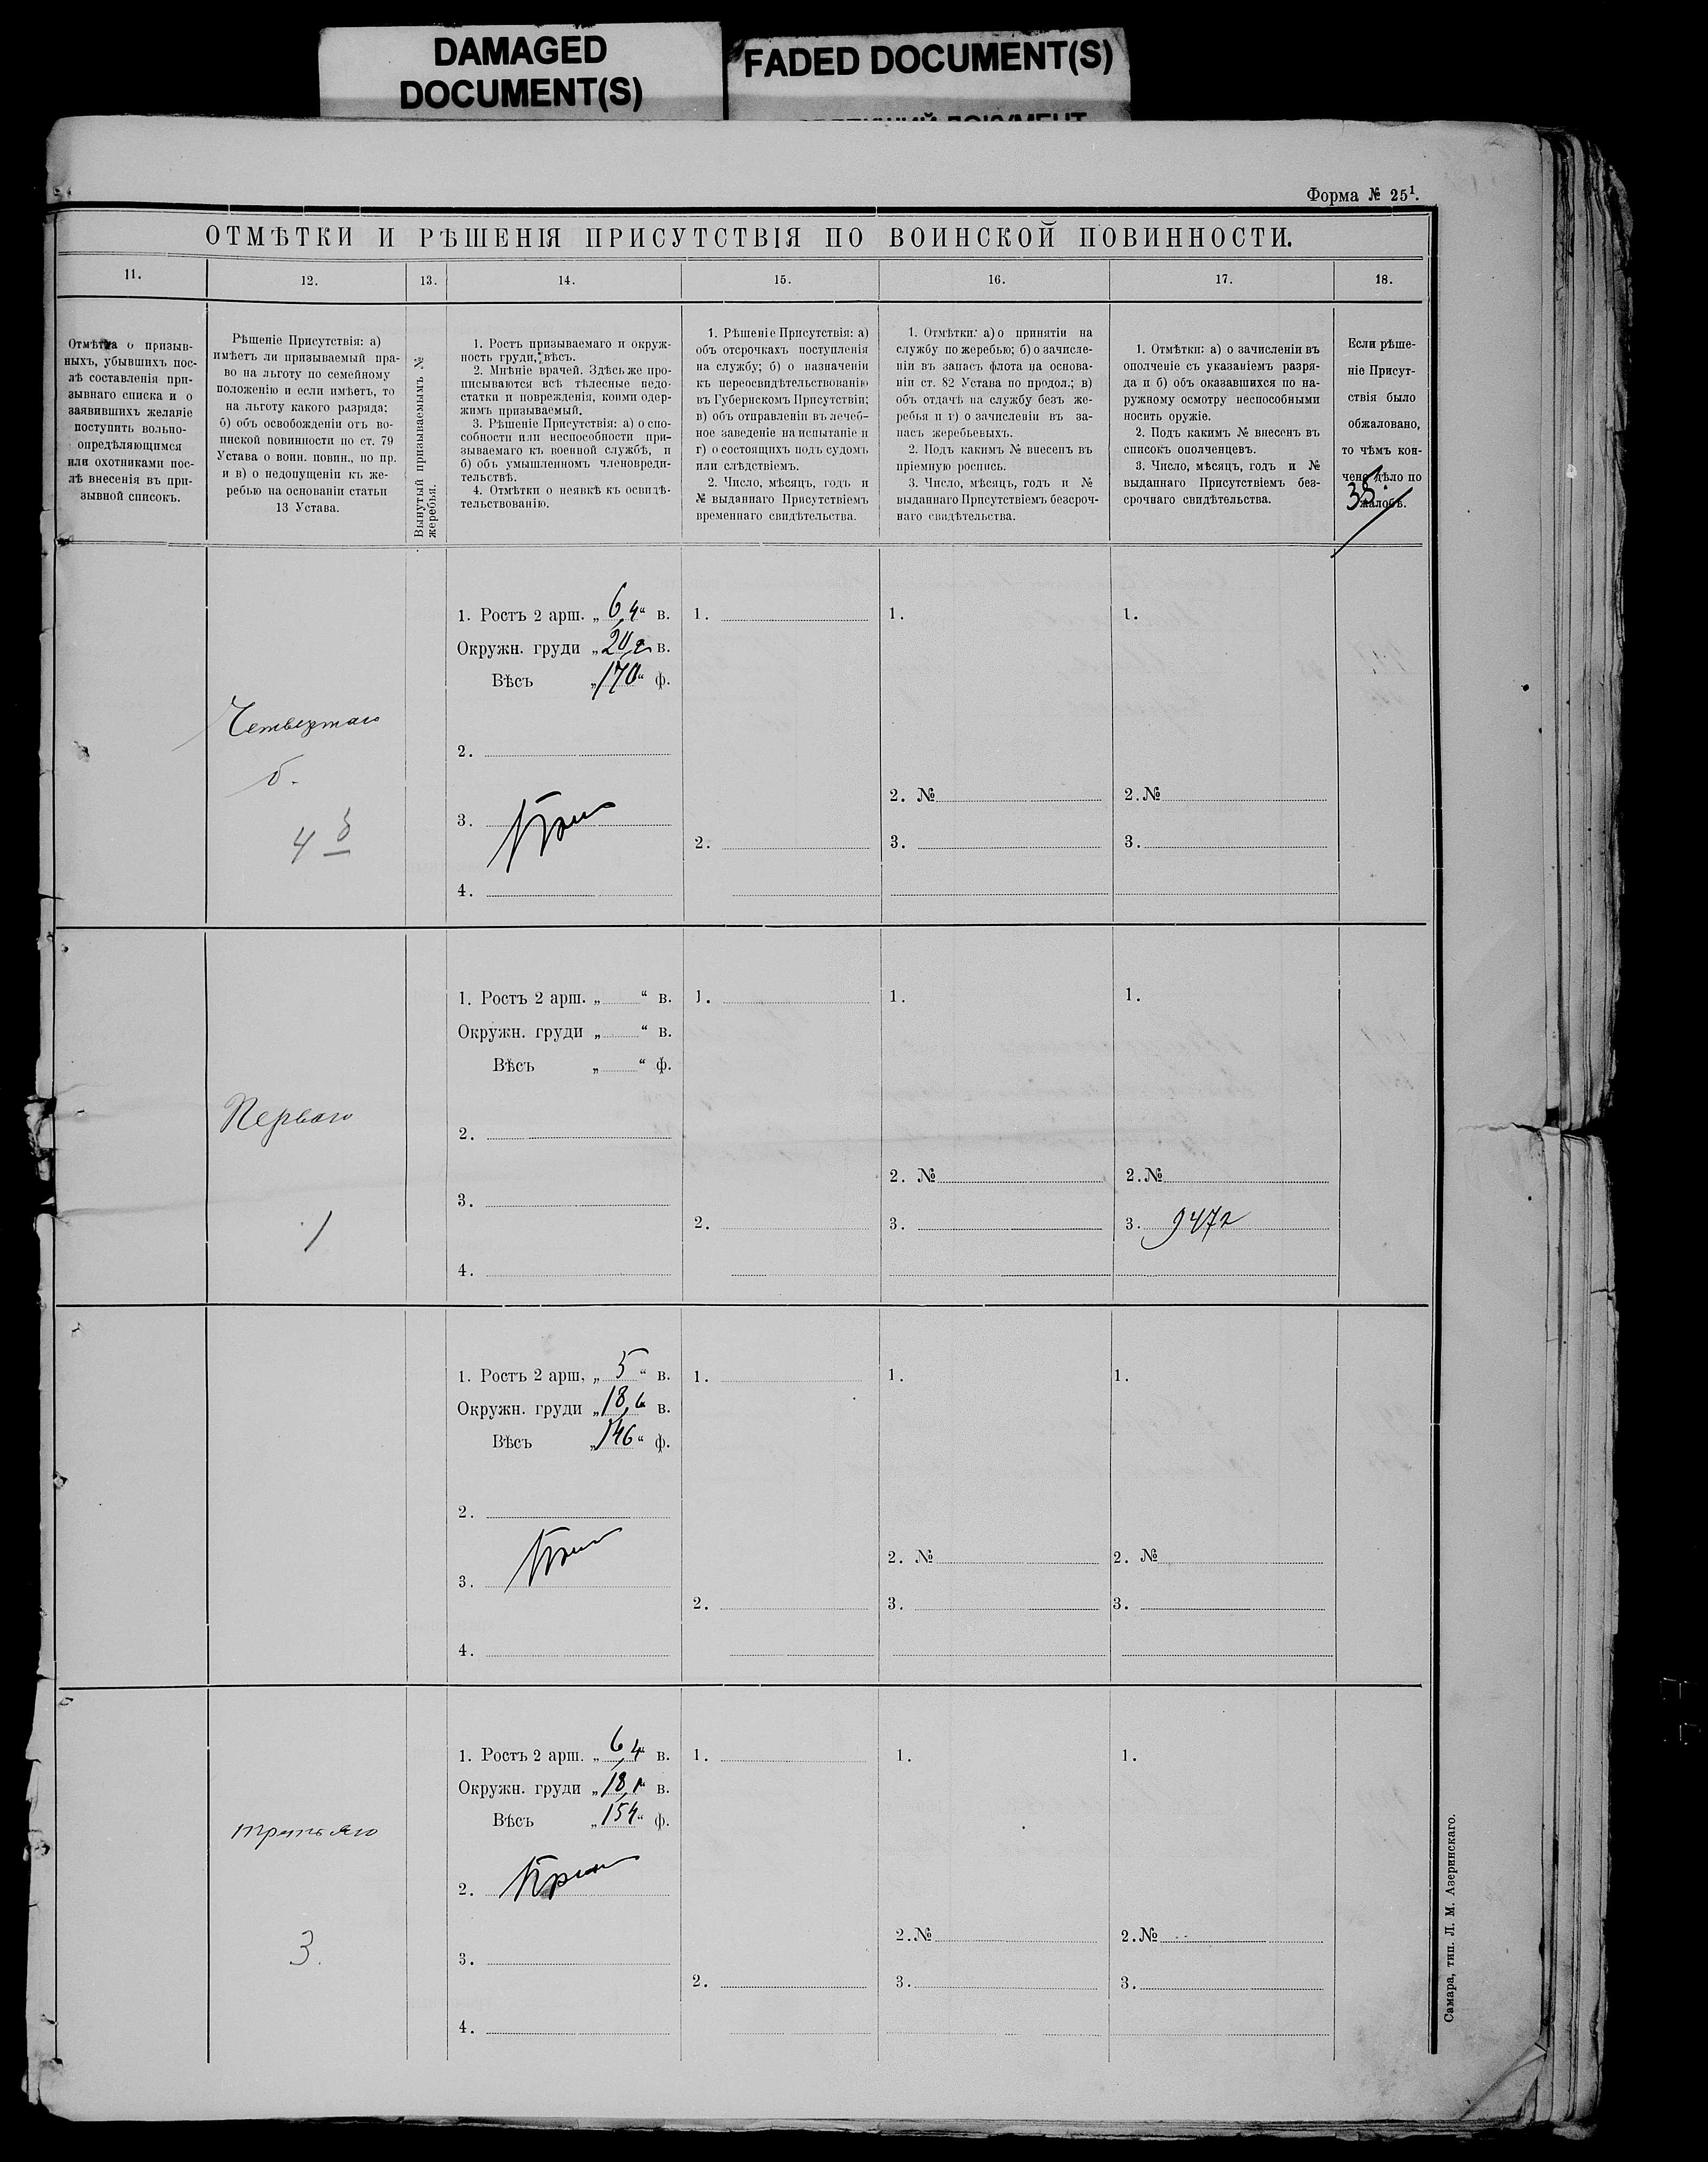 DAMAGED
DOCUMENT(S)
FADED DOCUMENT(S)
Форма № 25¹.
ОТМѢТКИ И РѢШЕНІЯ ПРИСУТСТВІЯ ПО ВОИНСКОЙ ПОВИННОСТИ.
11.
12.
13.
14.
15.
16.
17.
18.
Отмѣтка о призыв-
ныхъ, убывшихъ пос-
лѣ составленія при-
зывнаго списка и о
заявившихъ желаніе
поступить вольно-
опредѣляющимся
или охотниками пос-
лѣ внесенія въ при-
зывной списокъ.
Рѣшеніе Присутствія: а)
имѣетъ ли призываемый пра-
во на льготу по семейному
положенію и если имѣетъ, то
на льготу какого разряда;
б) объ освобожденіи отъ во-
инской повинности по ст. 79
Устава о воин. повин., по пр.
и в) о недопущеніи къ же-
ребью на основаніи статьи
13 Устава.
Вынутый призываемымъ №
жеребья.
1. Ростъ призываемаго и окруж-
ность груди, вѣсъ.
2. Мнѣніе врачей. Здѣсь же про-
писываются всѣ тѣлесные недо-
статки и поврежденія, коими одер-
жимъ призываемый.
3. Рѣшеніе Присутствія: а) о спо-
собности или неспособности при-
зываемаго къ военной службѣ, и
б) объ умышленномъ членовреди-
тельствѣ.
4. Отмѣтки о неявкѣ къ освидѣ-
тельствованію.
1. Рѣшеніе Присутствія: а)
объ отсрочкахъ поступленія
на службу; б) о назначеніи
къ переосвидѣтельствованію
въ Губернскомъ Присутствіи;
в) объ отправленіи въ лечеб-
ное заведеніе на испытаніе и
г) о состоящихъ подъ судомъ
или слѣдствіемъ.
2. Число, мѣсяцъ, годъ и
№ выданнаго Присутствіемъ
временнаго свидѣтельства.
1. Отмѣтки: а) о принятіи на
службу по жеребью; б) о зачисле-
ніи въ запасъ флота на основа-
ніи ст. 82 Устава по продол.; в)
объ отдачѣ на службу безъ же-
ребья и г) о зачисленіи въ за-
пасъ жеребьевыхъ.
2. Подъ какимъ № внесенъ въ
пріемную роспись.
3. Число, мѣсяцъ, годъ и №
выданнаго Присутствіемъ безсроч-
наго свидѣтельства.
1. Отмѣтки: а) о зачисленіи въ
ополченіе съ указаніемъ разря-
да и б) объ оказавшихся по на-
ружному осмотру неспособными
носить оружіе.
2. Подъ какимъ № внесенъ въ
списокъ ополченцевъ.
3. Число, мѣсяцъ, годъ и №
выданнаго Присутствіемъ без-
срочнаго свидѣтельства.
Если рѣше-
ніе Присут-
ствія было
обжаловано,
то чѣмъ кон-
чено дѣло по
жалобѣ.
38
Четвертаго
б.
4 3
1. Ростъ 2 арш. „ 6,4 “ в.
Окружн. груди „ 20,2 в.
Вѣсъ „ 170 “ ф.
2.
3.
4.
1.
2.
1.
2. №
3.
1.
2. №
3.
Перваго
1
1. Ростъ 2 арш. „ “ в.
Окружн. груди „ “ в.
Вѣсъ „ “ ф.
2.
3.
4.
1.
2.
1.
2. №
3.
1.
2. №
3. 9472
1. Ростъ 2 арш. „ 5 “ в.
Окружн. груди „ 18,6 в.
Вѣсъ „ 146 “ ф.
2.
3.
4.
1.
2.
1.
2. №
3.
1.
2. №
3.
третьяго
3.
1. Ростъ 2 арш. „ 6,4 “ в.
Окружн. груди „ 18,1 “ в.
Вѣсъ „ 154 “ ф.
2.
3.
4.
1.
2.
1.
2. №
3.
1.
2. №
3.
Самара, тип. Л. М. Азеринскаго.